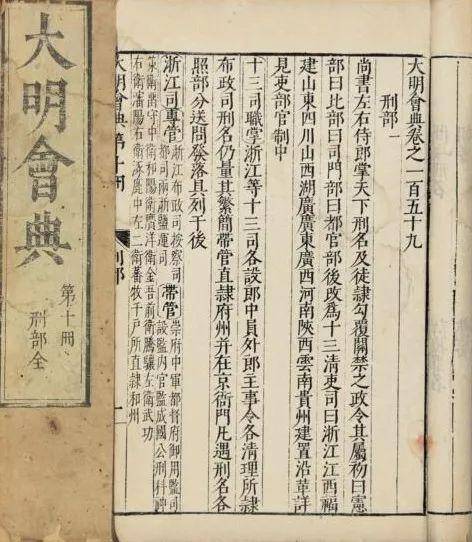 大明會典卷之一百五十九
刑部一
尚書左右侍郎掌天下刑名及徒隷勾覆關禁之政令其屬初曰憲
部曰比部曰司門部曰都官部後改為十三清吏司曰浙江江西福
建山東四川山西湖廣廣東廣西河南陝西雲南貴州建置沿革詳
見吏部官制中
十三司職掌浙江等十三司各設郎中員外郎主事令各清理所隷
布政司刑名仍量其繁簡帶管直隷府州并在京衙門凡遇刑名各
照部分送問發落具列于後
浙江司專管
浙江布政司按察司
都司兩浙鹽運司
帶管
崇府中軍都督府御用監司
設監內官監成國公刑科
衛留守中衛和陽衛廣洋衛金吾前衛騰驤左衛武功
右衛瀋陽右衛涿鹿中左二衛蕃牧千戶所直隷和州
大明會典第十冊
刑部
一
大明會典
第十冊
刑部全